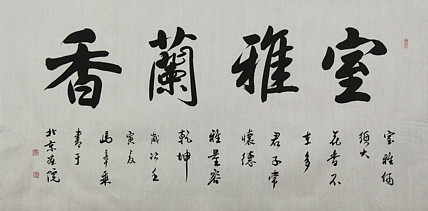 室雅蘭香
室雅何
須大
花香不
在多
君子常
懷德
雅量容
乾坤
歲次壬
寅夏
馬章乘
書于
北京画院